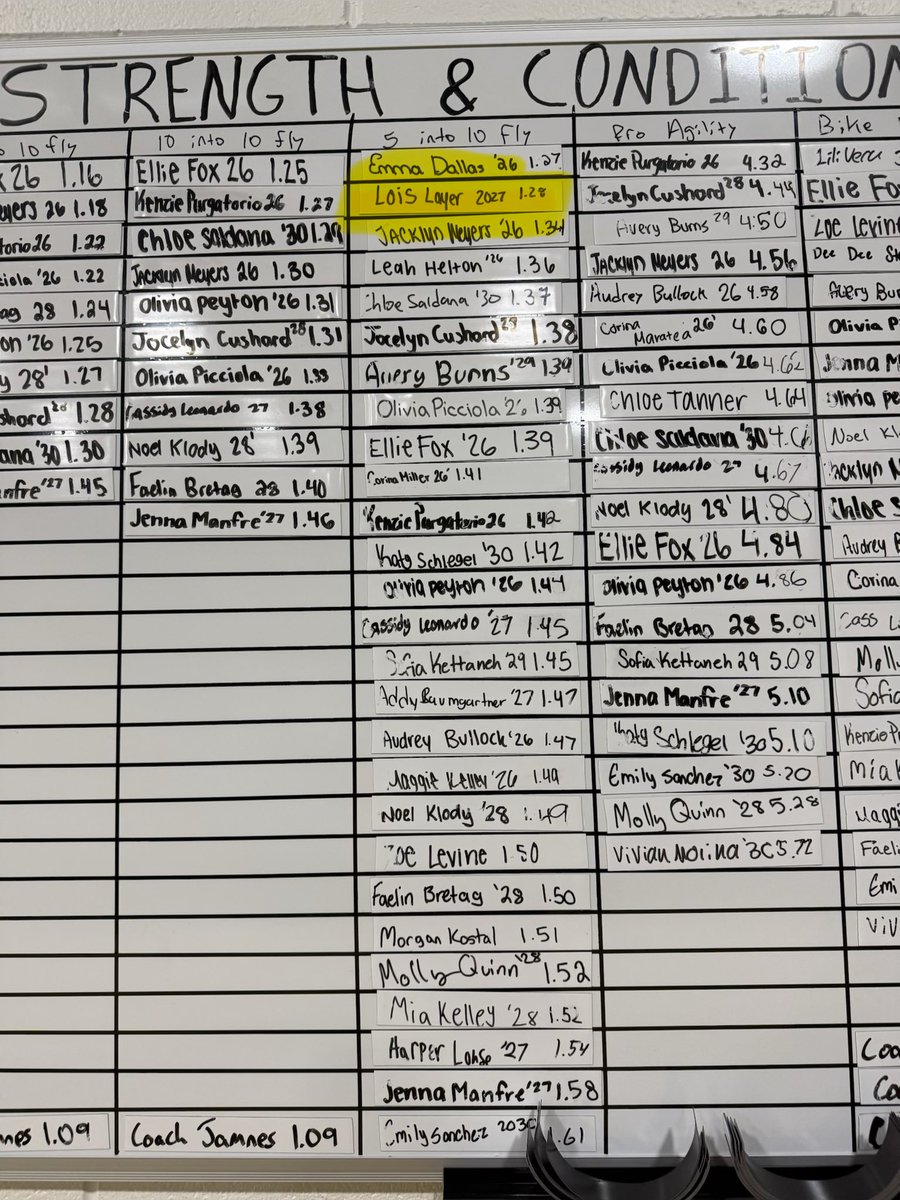 STRENGTH & CONDITION
10 fly
26 1.16
eyers 26 1.18
torio 26 1.22
ciola '26 1.22
ag 28 1.24
on '26 1.25
y 28' 1.27
shard 28 1.28
ana '30 1.30
anfre '27 1.45
nes 1.09
10 into 10 fly
Ellie Fox 26 1.25
Kenzie Purgatorio 26 1.27
Chloe Saldana '30 1.29
Jacklyn Meyers 26 1.30
Olivia Peyton '26 1.31
Jocelyn Cushard 28 1.31
Olivia Picciola '26 1.33
Cassidy Leonardo 27 1.38
Noel Klody 28' 1.39
Faelin Bretag 28 1.40
Jenna Manfre '27 1.46
Coach Jamnes 1.09
5 into 10 fly
Emma Dallas '26 1.27
Lois Layer 2027 1.28
Jacklyn Meyers '26 1.34
Leah Helton '26 1.36
Chloe Saldana '30 1.37
Jocelyn Cushard 28 1.38
Avery Burns '29 1.39
Olivia Picciola '26 1.39
Ellie Fox '26 1.39
Corina Miller 26' 1.41
Kenzie Purgatorio 26 1.42
Katy Schlegel '30 1.42
Olivia Peyton '26 1.44
Cassidy Leonardo '27 1.45
Sofia Kettaneh 29 1.45
Addy Baumgartner '27 1.47
Audrey Bullock '26 1.47
Maggie Kelley '26 1.49
Noel Klody '28 1.49
Zoe Levine 1.50
Faelin Bretag '28 1.50
Morgan Kostal 1.51
Molly Quinn '28 1.52
Mia Kelley '28 1.52
Harper Lohse '27 1.54
Jenna Manfre '27 1.58
Emily Sanchez 2030 1.61
Pro Agility
Kenzie Purgatorio 26 4.32
Jocelyn Cushard 28 4.44
Avery Burns 29 4.50
Jacklyn Meyers 26 4.56
Audrey Bullock 26 4.58
Corina 26' 4.60
Olivia Picciola '26 4.62
Chloe Tanner 4.64
Chloe Saldana '30 4.66
Cassidy Leonardo 27 4.67
Noel Klody 28' 4.80
Ellie Fox '26 4.84
Olivia Peyton '26 4.86
Faelin Bretag 28 5.04
Sofia Kettaneh 29 5.08
Jenna Manfre '27 5.10
Katy Schlegel '30 5.10
Emily Sanchez '30 5.20
Molly Quinn '28 5.28
Vivian Molina '30 5.72
Bike
Lili Vera
Ellie Fo
Zoe Levin
Dee Dee St
Avery Bur
Olivia P
Jenna M
Olivia pe
Noel Kl
Jacklyn M
Chloe S
Audrey B
Corina
Cass L
Molly
Sofia
Kenzie P
Mia K
Maggi
Faeli
Emi
Viv
Coa
Co
C